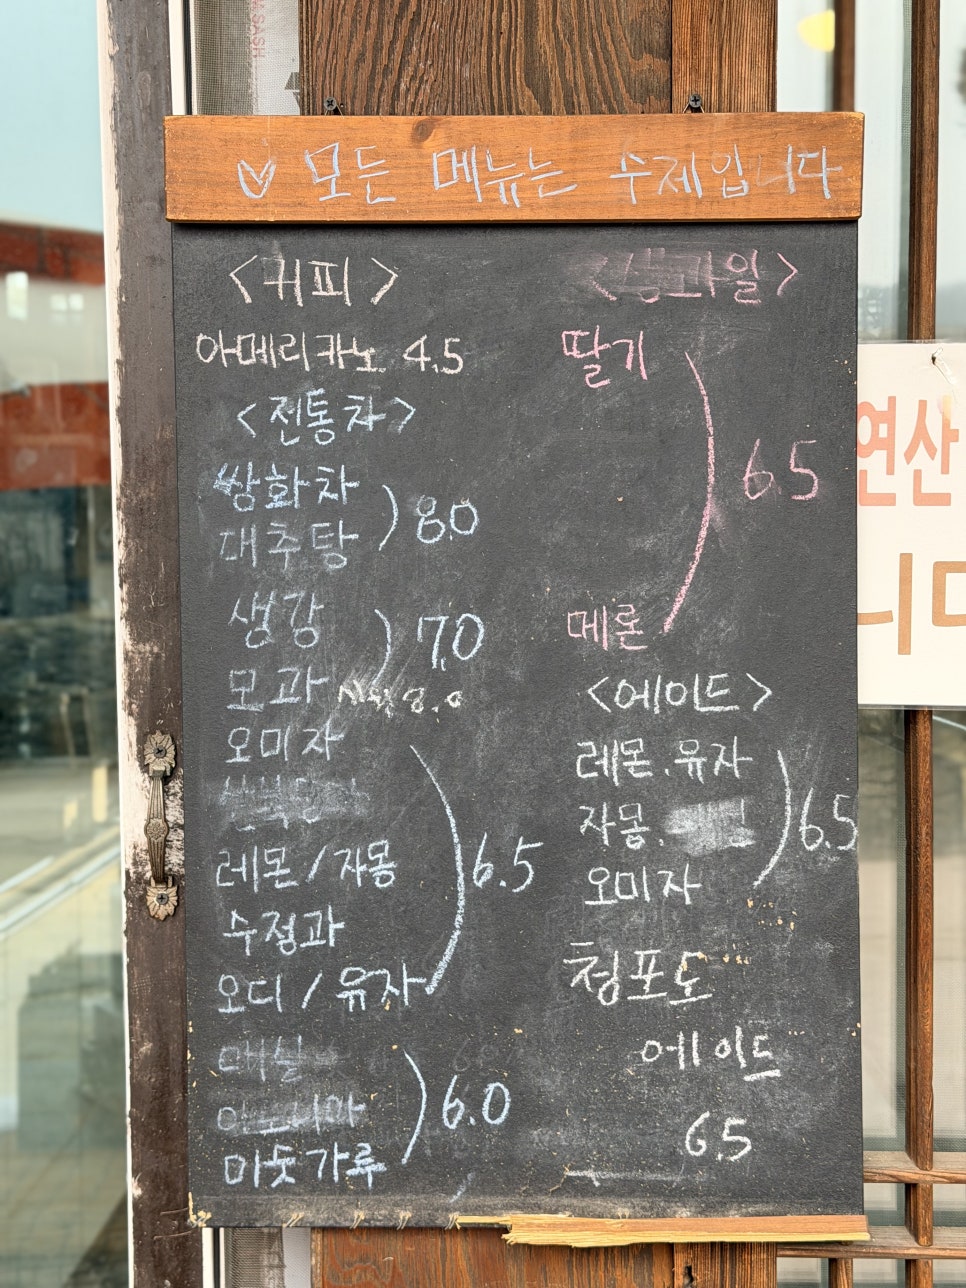 모든 메뉴는 수제입니다
<커피>
아메리카노 4.5
<전통차>
쌍화차
대추탕
8.0
생강
모과
7.0
오미자
레몬 / 자몽
수정과
오디 / 유자
6.5
매실
미숫가루
6.0
딸기
메론
6.5
<에이드>
레몬. 유자
자몽.
오미자
6.5
청포도
에이드
6.5
연산
니다